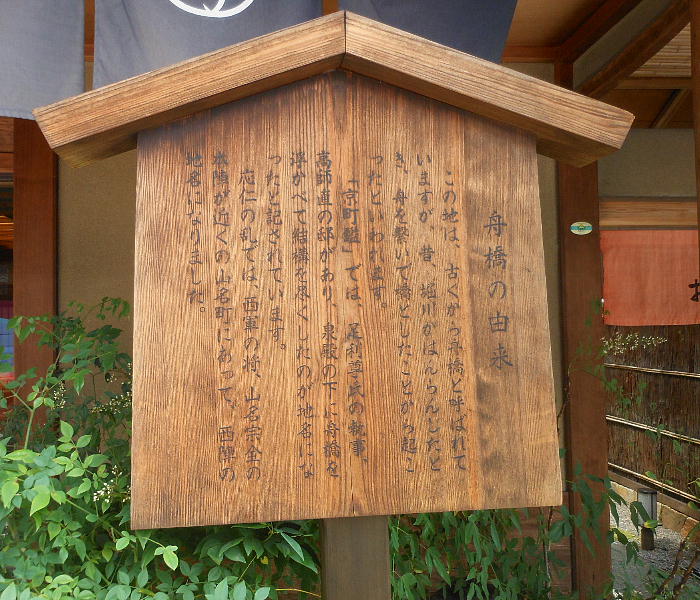 舟橋の由来
この地は、古くから舟橋と呼ばれて
いますが、昔、堀川がはんらんしたと
き、舟を繋いで橋としたことから起こ
ったといわれます。
「京町鑑」では、足利尊氏の執事、
高師直の邸があり、泉殿の下に舟橋を
浮かべて結構を尽くしたのが地名にな
ったと記されています。
応仁の乱では、西軍の将、山名宗全の
本陣が近くの山名町にあって、西陣の
地名になりました。
お